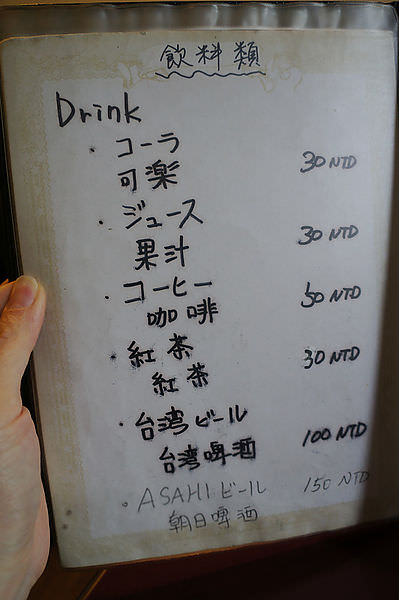 飲料類
Drink
・コーラ 30 NTD
可楽
・ジュース 30 NTD
果汁
・コーヒー 50 NTD
咖啡
・紅茶 30 NTD
紅茶
・台湾ビール 100 NTD
台湾啤酒
・ASAHIビール 150 NTD
朝日啤酒